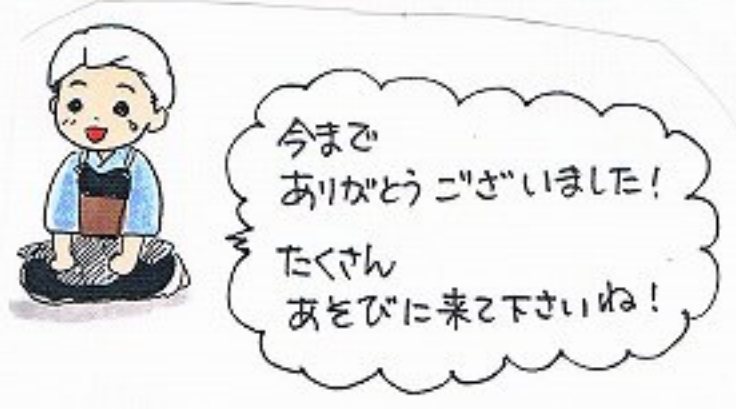 今まで
ありがとうございました!
たくさん
あそびに来て下さいね!